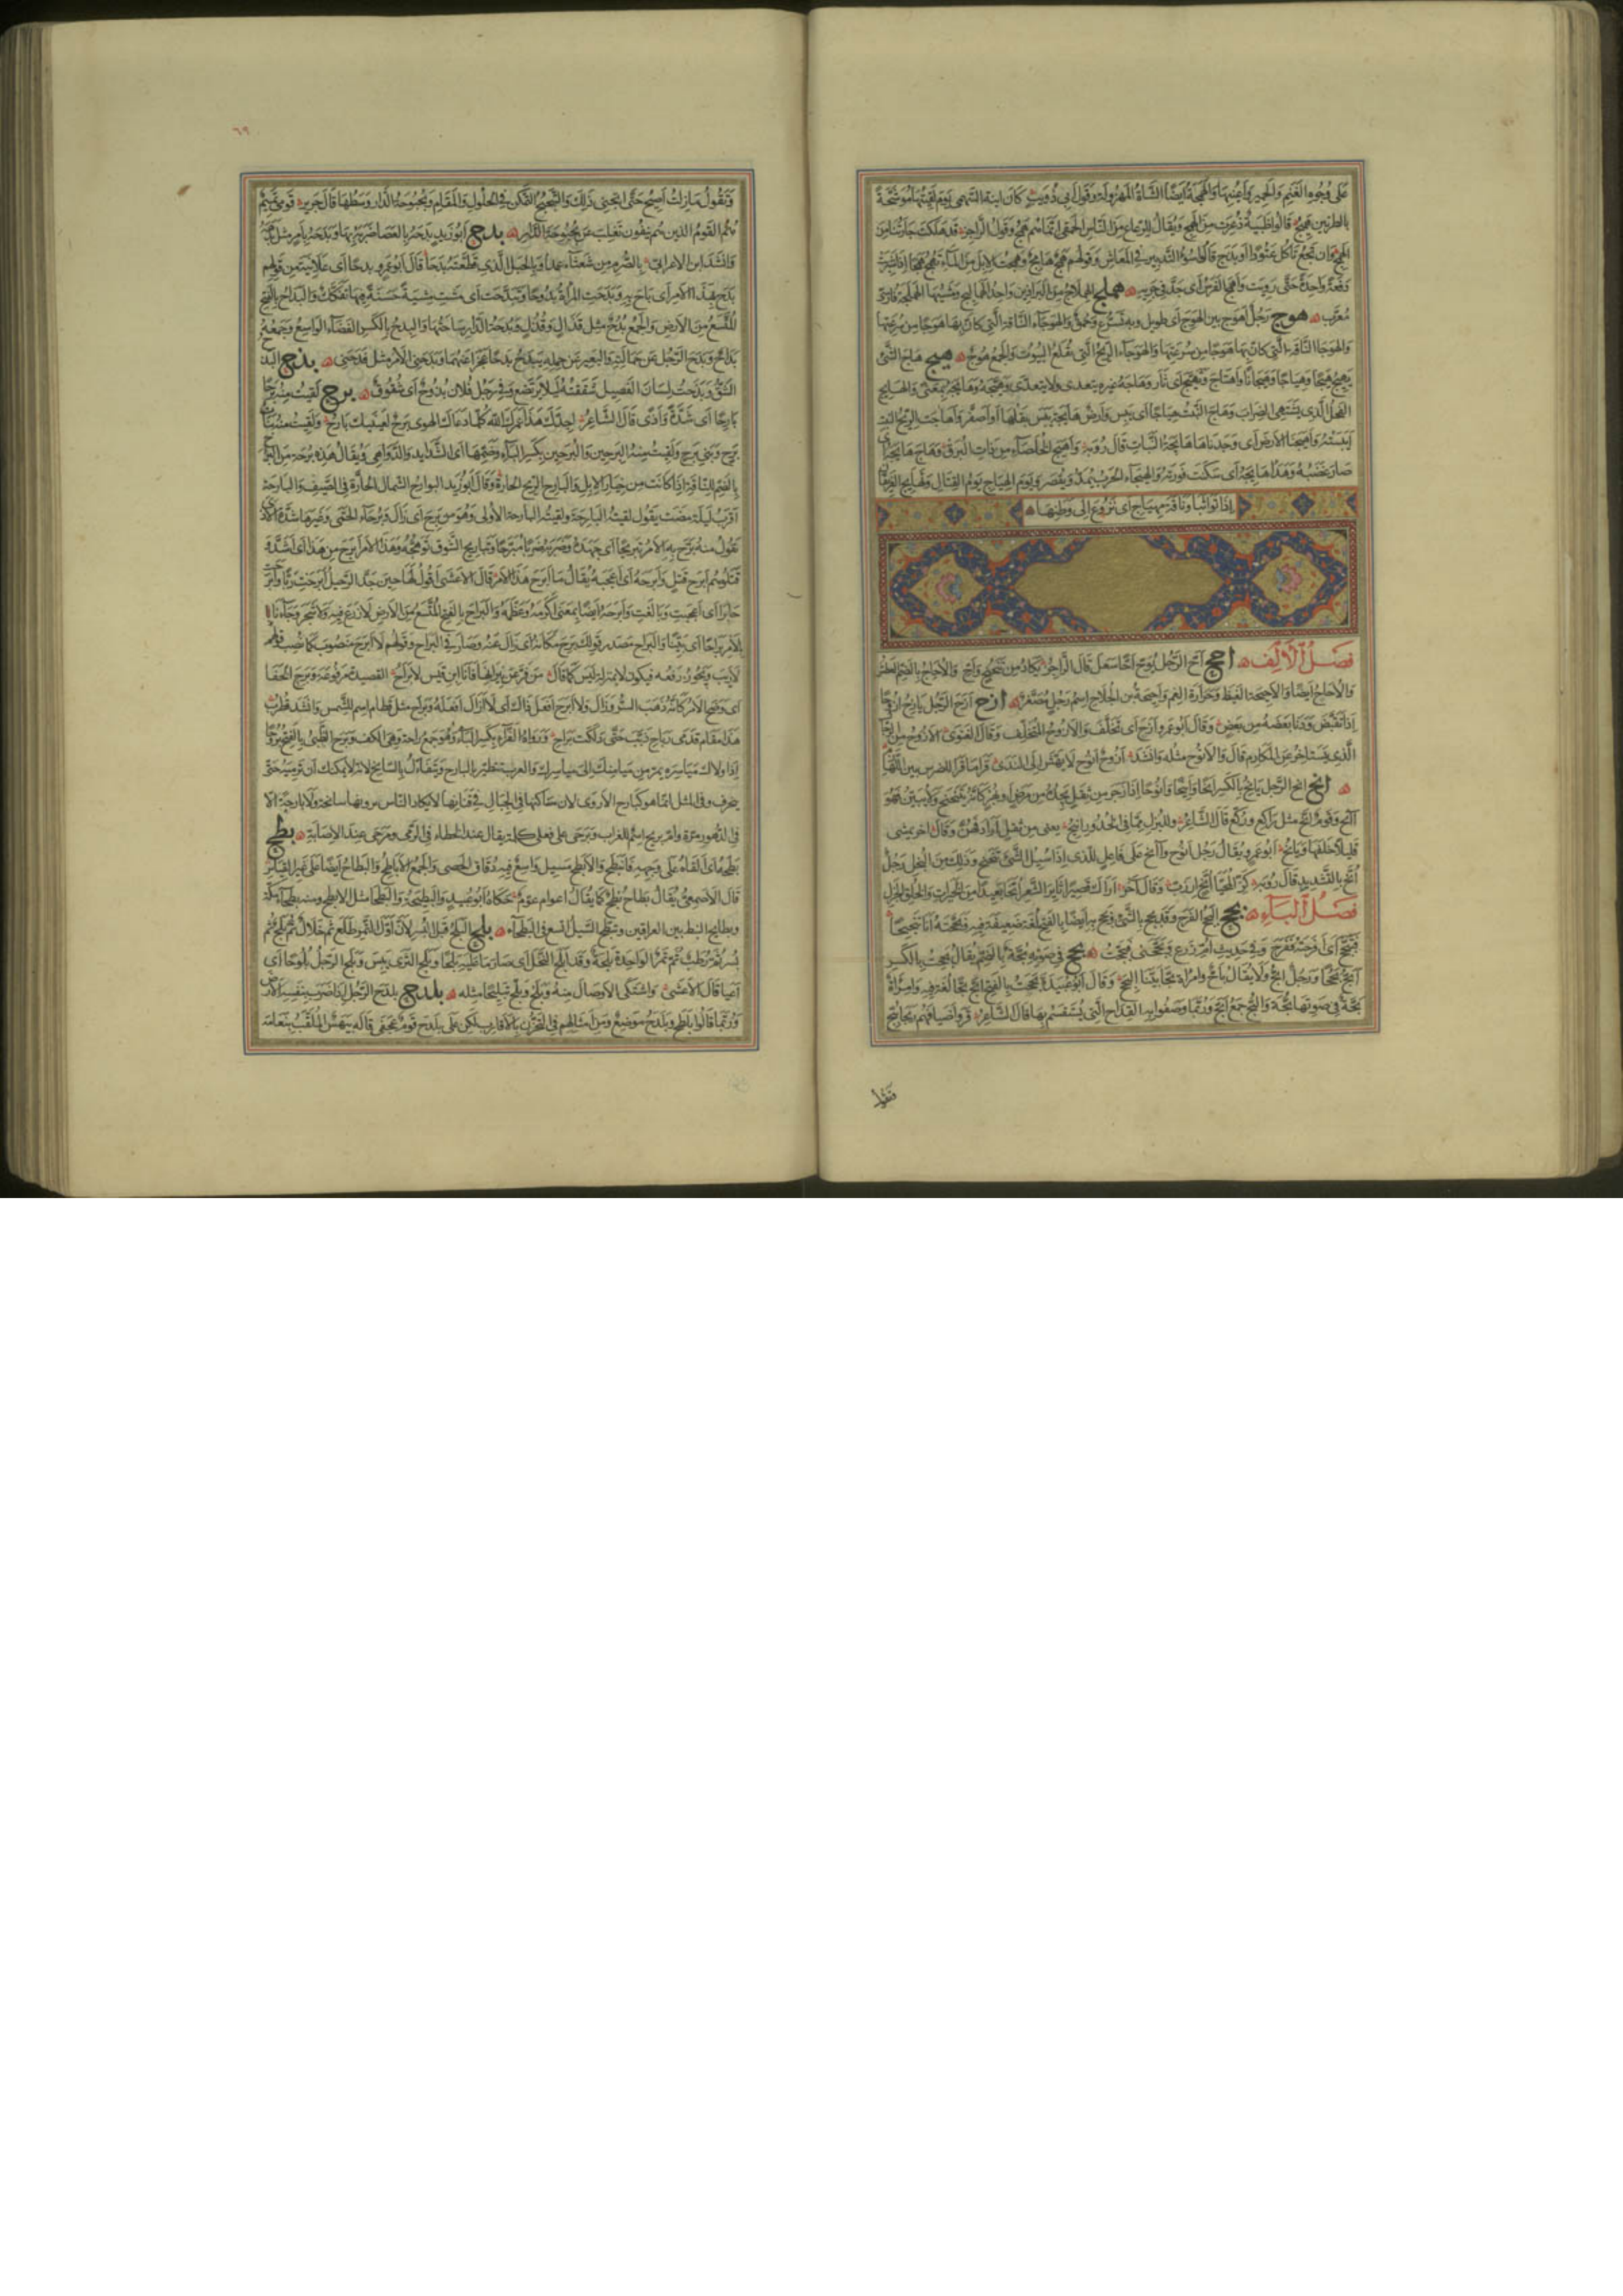 على وجوه الغنم والحمير واعينها والهمجة ايضا الشاة المهزولة وقول ابي ذويب كان ابنة السهمي يوم لقيتها موشحة
بالطرتين هميج قالوا ظبية ذعرت من الهمج ويقال للرعاع من الناس الحمقى انما هم همج وقول الراجز قد هلكت جارتنا من
الهمج وان تجع تاكل عتودا او بذج قالوا سوء التدبير في المعاش وقولهم همج هامج وهمجت الابل من الماء تهمج همجا اذا شربت
دفعة واحدة حتى رويت واهمج الفرس اى جد في جريه هملج الهملاج من البراذين واحد الهماليج ومشيها الهملجة فارسى
معرب هوج رجل اهوج بين الهوج اى طويل وبه تسرع وحمق والهوجاء الناقة التي كان بها هوجا من سرعتها
والهوجاء الريح التي تقلع البيوت والجمع هوج هيج هاج الشئ
يهيج هيجا وهياجا وهيجانا واهتاج وتهيج اى ثار وهاجه غيره يتعدى ولا يتعدى وهيجه وهايجه بمعنى والهايج
الفحل الذي يشتهى الضراب وهاج النبت هياجا اى يبس وارض هايجة يبس بقلها او اصفر واهاجت الريح النبت
ايبسته واهيجنا الارض اى وجدناها هايجة النبات قال روبة واهيج الخلصاء من ذات البرق وهاج هايجه
صار غضبه وهدا هايجه اى سكنت فورته والهيجاء الحرب يمد ويقصر ويوم الهياج يوم القتال وتهايج الفريقان
اذا تواثبا وناقة مهياج اى نزوع الى وطنها
فصل الالف احح اح الرجل يوح احا سعل قال الراجز يكاد من تنحنح واح والاحاح بالضم العطش
والاحاح ايضا والاحيحة الغيظ وحرارة الغم واحيحة بن الجلاح اسم رجل مصغر ازح ازح الرجل يازح ازوحا
اذا تقبض ودنا بعضه من بعض وقال ابو عمرو ازح اى تخلف والازوح المتخلف وقال الغنوى الازوح من الرجال
الذي يستاخر عن المكارم قال والانوح مثله وانشد ازوح انوح لا يهش الى الندى قرا ما قرا للضرس بين اللهازم
انح انح الرجل يانح بالكسر انحا وانيحا وانوحا اذا زحر من ثقل يجده من مرض او بهر كانه يتنحنح ولا يبين فهو
آنح وقوم انح مثل راكع وركع قال الشاعر
قليلا خلفها ويانح ابو عمرو يقال رجل انوح وآنح على فاعل للذى اذا سيل الشئ تنحنح وذلك من البخل رجل
انح بالتشديد قال روبة كز المحيا انح ارزب وقال آخر اراك قصيرا ثاير الشعر انحا بعيدا من الخيرات والخلق الجزل
فصل الباء بجح البجح الفرح وقد بجح بالشئ وبجح به ايضا بالفتح لغة ضعيفة فيه وبجحته انا تبجيحا
فتبجح اى افرحته ففرح وفي حديث ام زرع وبجحنى فبجحت بحح في صوته بحة بالضم يقال بححت بالكسر
ابح بححا ورجل ابح ولا يقال باح وامراة بحاء بينا البحح وقال ابو عبيدة بححت بالفتح ابح بحا لغة فيه وامراة
بحة في صوتها بحة والبح جمع ابح وربما وصفوا به القداح التي يستقسم بها قال الشاعر قروا اضيافهم ربحا ببح
٦٩
وتقول ما زلت اصيح حتى ابحنى ذلك والتبحبح التمكن في الحلول والمقام وبحبوحة الدار وسطها قال جرير قومى تميم
هم القوم الذين هم ينفون تغلب عن بحبوحة الدار بدح ابو زيد بدحه بالعصا ضربه بها وبدحه بامر مثل بدهه
وانشد ابن الاعرابى بالصرم من شعثاء والحبل الذى قطعته بدحا قال ابو عمرو بدحا اى علانية من قولهم
بدح بهذا الامر اى باح به وبدحت المراة بدوحا وتبدحت اى مشت مشية حسنة فيها تفكك والبداح بالفتح
المتسع من الارض والجمع بدح مثل قذال وقذل وبدحة الدار ساحتها والبدح بالكسر الفضاء الواسع وجمعه بدوح
بداح وبدح الرجل عن حمالته والبعير عن حمله يبدح بدحا عجزا عنهما وبدحنى الامر مثل فدحنى بذح البذح
الشق وبذحت لسان الفصيل شققته لئلا يرتضع وفي رجل فلان بذوح اى شقوق برح لقيت منه برحا
بارحا اى شدة واذى قال الشاعر اجدك هذا عمرك الله كلما دعاك الهوى برح لعينيك بارح ولقيت منه بنات
برح وبنى برح ولقيت منه البرحين والبرحين بكسر الباء وضمها اى الشدايد والدواهى ويقال هذه برحة من البرح
بالضم للناقة اذا كانت من خيار الابل والبارح الريح الحارة وقال ابو زيد البوارح الشمال الحارة في الصيف والبارحة
اقرب ليلة مضت يقول لقيته البارحة ولقيته البارحة الاولى وهو من برح اى زال وبرحاء الحمى وغيرها شدة الاذى
تقول منه برح به الامر تبريحا اى جهده وضربه ضربا مبرحا وتباريح الشوق توهجه وهذا الامر ابرح من هذا اى اشد
قتلوهم ابرح قتل وابرحه اى اعجبه يقال ما ابرح هذا الامر قال الاعشى اقول لها حين جد الرحيل ابرحت ربا وابرحت
جارا اى اعجبت وبالغت وابرحه ايضا بمعنى اكرمه وعظمه والبراح بالفتح المتسع من الارض لا زرع فيه ولا شجر وجاءنا
بالامر براحا اى بينا والبراح مصدر قولك برح مكانه اى زال عنه وصار في البراح وقولهم لا براح منصوب كما نصب قولهم
لا ريب ويجوز رفعه فيكون لا بمنزلة ليس كما قال من فر عن نيرانها فانا ابن قيس لا براح القصيدة مرفوعة وبرح الخفا
اى وضح الامر كانه ذهب السر وزال ولا ابرح افعل ذاك اى لا ازال افعله وبراح مثل قطام اسم للشمس وانشد قطرب
هذا مقام قدمى رباح ذبب حتى دلكت براح ورواه الفراء بكسر الباء وهو جمع راحة وهى الكف وبرح الظبى بالفتح بروحا
اذا ولاك مياسره يمر من ميامنك الى مياسرك والعرب تتطير بالبارح وتتفاءل بالسانح لانه لا يمكنك ان ترميه حتى
ينحرف وفي المثل انما هو كبارح الاروى لان مساكنها في الجبال في قنانها لا يكاد الناس يرونها سانحة ولا بارحة الا
في الدهور مرة وام بريح اسم للغراب وبرحى على فعلى كلمة يقال عند الخطاء في الرمى ومرحى عند الاصابة بطح
بطحه اى القاه على وجهه فانبطح والابطح مسيل واسع فيه دقاق الحصى والجمع الاباطح والبطاح ايضا على غير القياس
قال الاصمعى يقال بطاح بطح كما يقال اعوام عوم حكاه ابو عبيد والبطيحة والبطحا مثل الابطح ومنه بطحاء مكة
وبطايح النبط بين العراقين وتبطح السيل اتسع في البطحاء بلح البلح قبل البسر لان اول التمر طلع ثم خلال ثم بلح ثم
بسر ثم رطب ثم تمر الواحدة بلحة وقد ابلح النخل اى صار ما عليه بلحا وبلح الثرى يبس وبلح الرجل بلوحا اى
اعيا قال الاعشى واشتكى الاوصال منه وبلح وبلح تبليحا مثله بلدح بلدح الرجل اذا ضرب بنفسه الارض
وربما قالوا بلطح وبلدح موضع ومن امثالهم في التحزن بالاقارب لكن على بلدح قوم عجفى قاله بيهس الملقب بنعامة